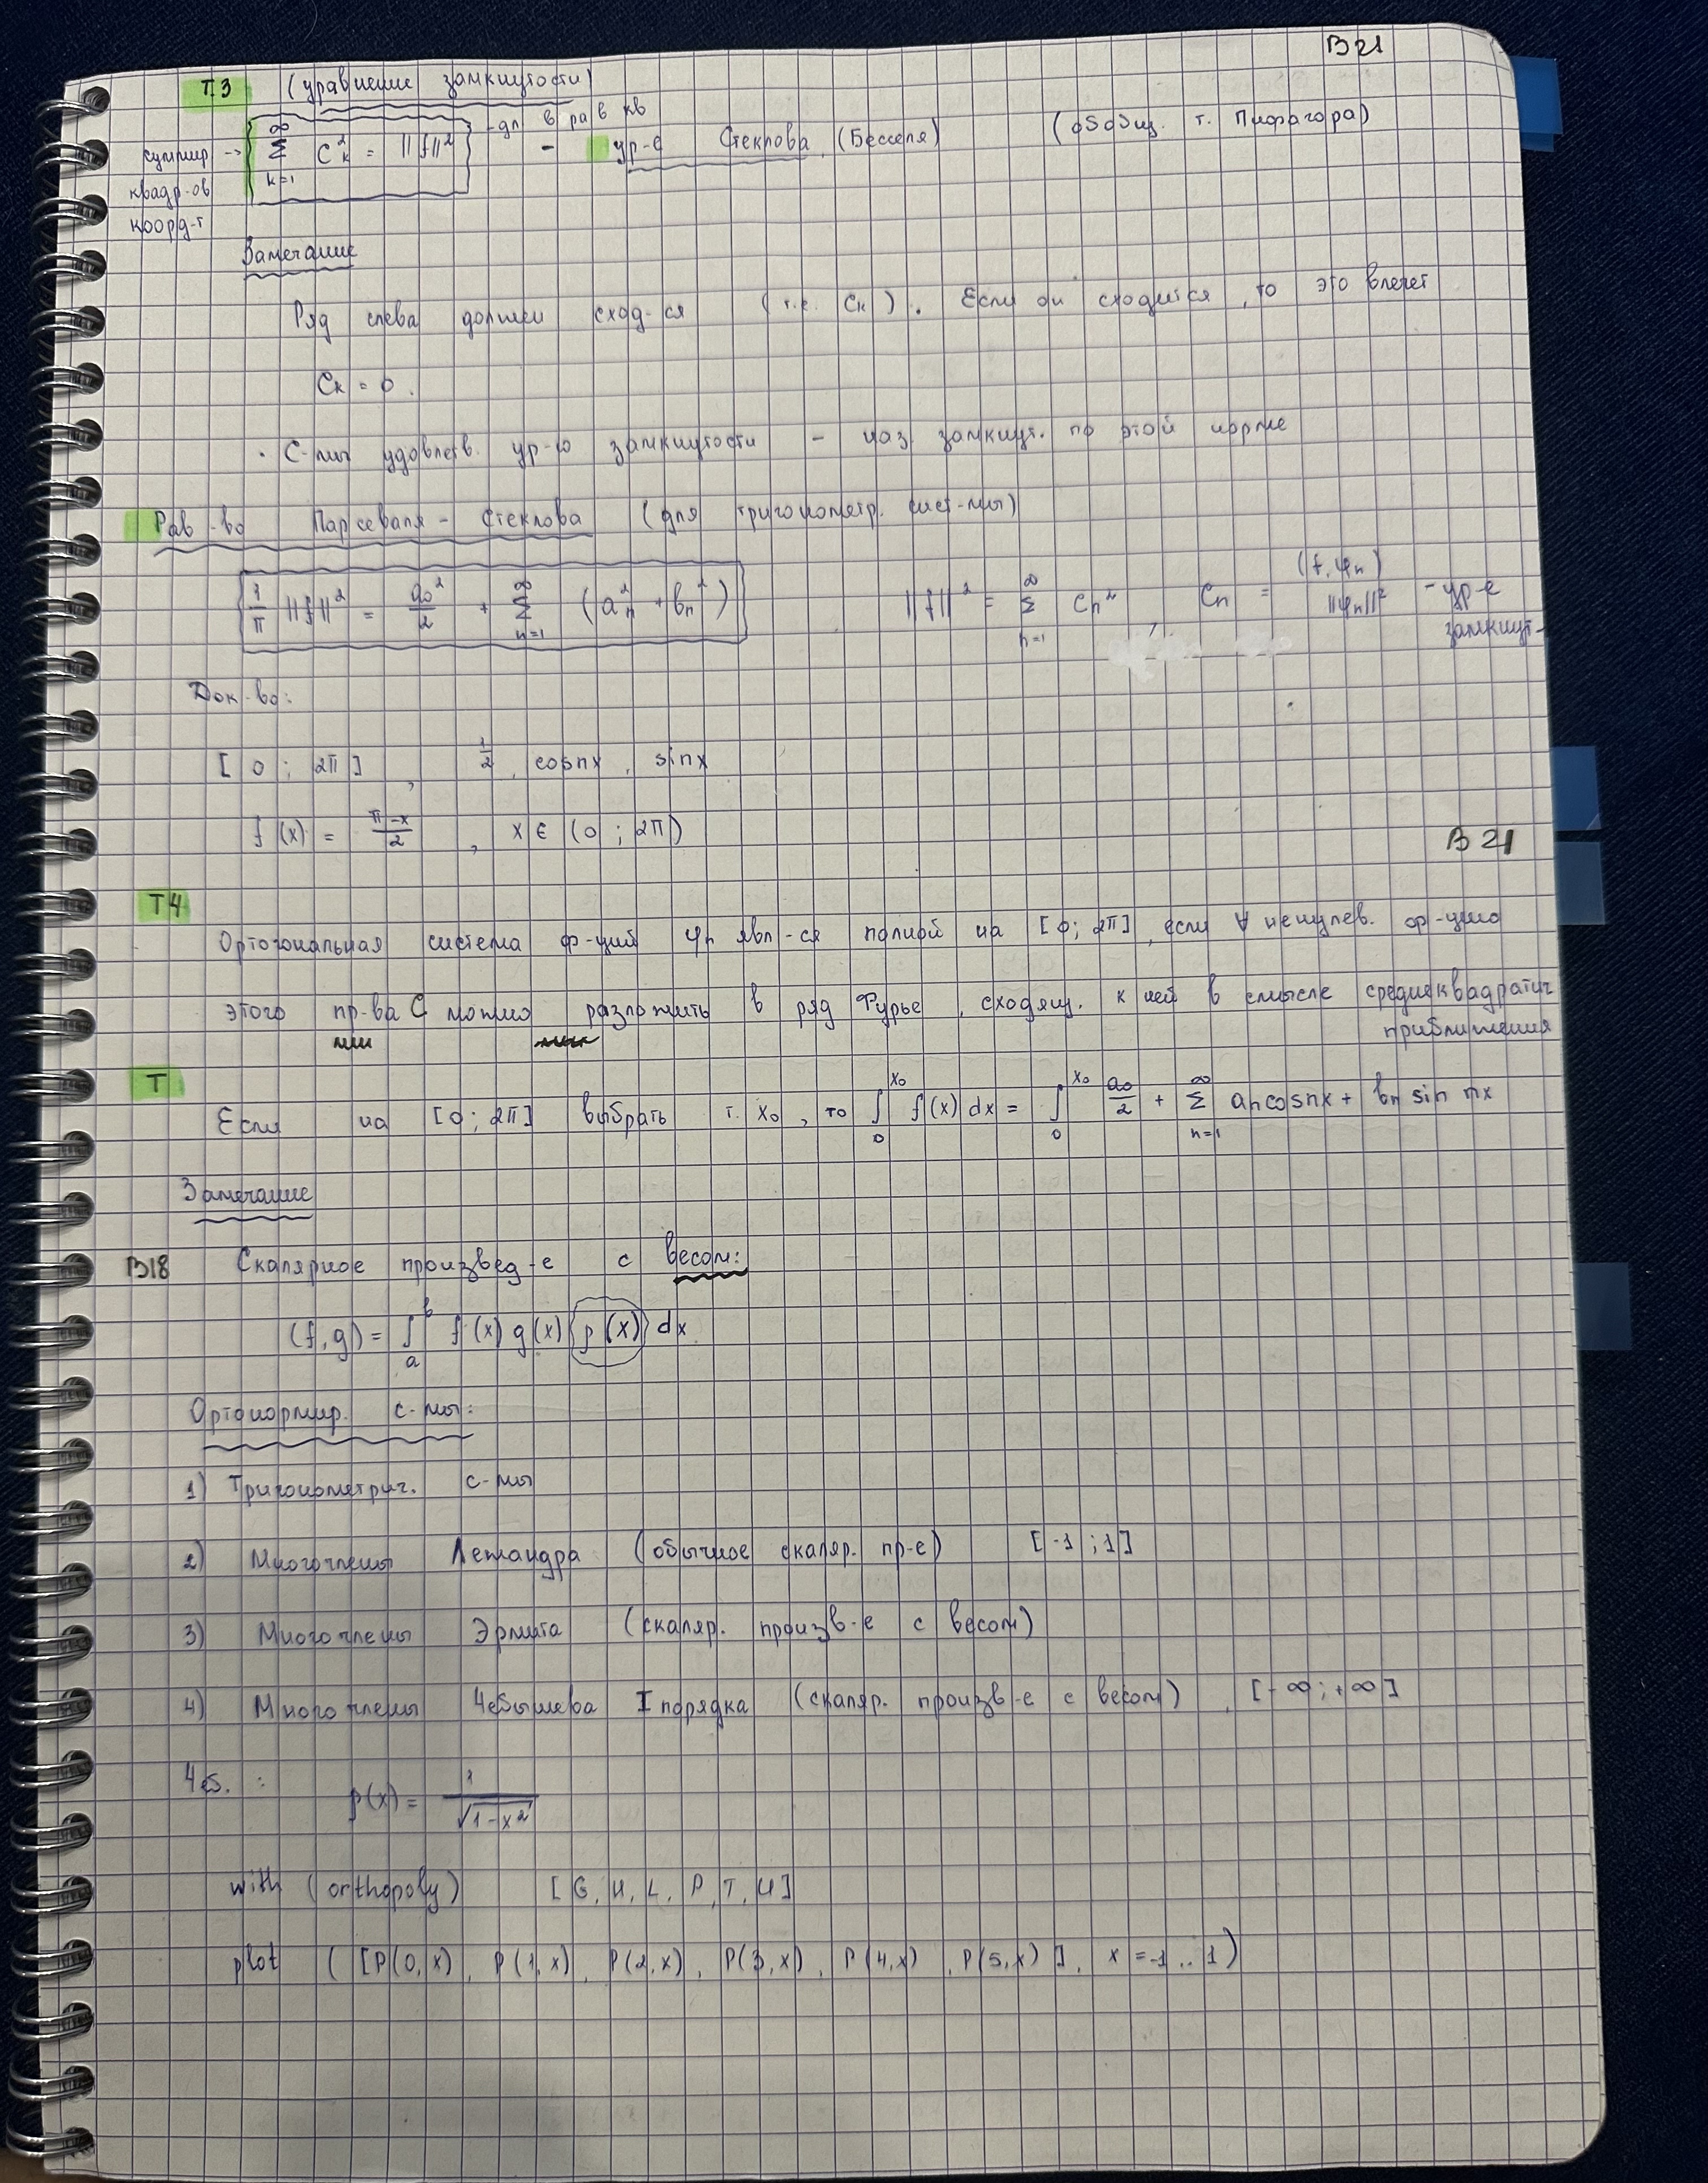 В21
Т3 (уравнение замкнутости)
суммир → ∑_{k=1}^{∞} C_k^2 = ||f||^2 - дл в ра в кв - ур-е Стеклова (Бесселя) (обобщ. т. Пифагора)
квадр-ов
коорд-т
Замечание
Ряд слева должен сход-ся (т.е. C_k). Если он сходится, то это влечет
C_k = 0.
· С-мы удовлетв. ур-ю замкнутости - наз замкнут. по этой норме
Рав-во Парсеваля - Стеклова (для тригонометр. сист-мы)
1/π ||f||^2 = a_0^2/2 + ∑_{n=1}^{∞} (a_n^2 + b_n^2) ||f||^2 = ∑_{n=1}^{∞} C_n^2, C_n = (f, φ_n)/||φ_n||^2 - ур-е
замкнут-
Док-во:
[0; 2π], 1/2, cosnx, sinx
f(x) = (π-x)/2, x ∈ (0; 2π)
В21
Т4
Ортогональная система ф-ций φ_n явл-ся полной на [0; 2π], если ∀ ненулев. ф-цию
этого пр-ва С можно разложить в ряд Фурье, сходящ. к ней в смысле среднеквадратич
приближения
Т
Если на [0; 2π] выбрать т. x_0, то ∫_0^{x_0} f(x) dx = ∫_0^{x_0} a_0/2 + ∑_{n=1}^{∞} a_n cosnx + b_n sin nx
Замечание
В18 Скалярное произвед-е с весом:
(f,g) = ∫_a^b f(x) g(x) p(x) dx
Ортонормир. с-мы:
1) Тригонометрич. с-мы
2) Многочлены Лежандра (обычное скаляр. пр-е) [-1; 1]
3) Многочлены Эрмита (скаляр. произв-е с весом)
4) Многочлены Чебышева I порядка (скаляр. произв-е с весом), [-∞; +∞]
Чеб. : p(x) = 1/√(1-x^2)
with (orthopoly) [G, H, L, P, T, U]
plot ([P(0,x), P(1,x), P(2,x), P(3,x), P(4,x), P(5,x)], x = -1 .. 1)